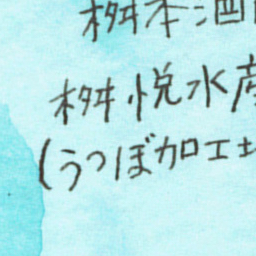 桝本酒
桝悦水産
(うつぼ加工